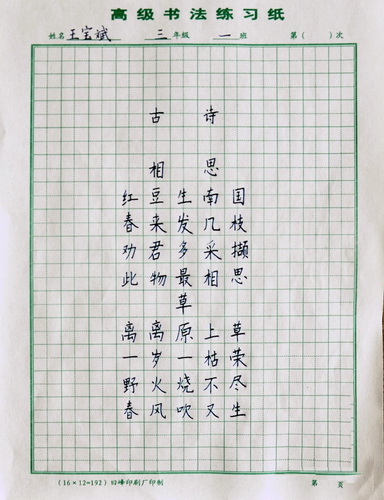 高级书法练习纸
姓名 王宝斌 三 年级 一 班 第( )次
古 诗
相 思
红豆生南国
春来发几枝
劝君多采撷
此物最相思
草
离离原上草
一岁一枯荣
野火烧不尽
春风吹又生
(16×12=192) 峰印刷厂印制 第 页